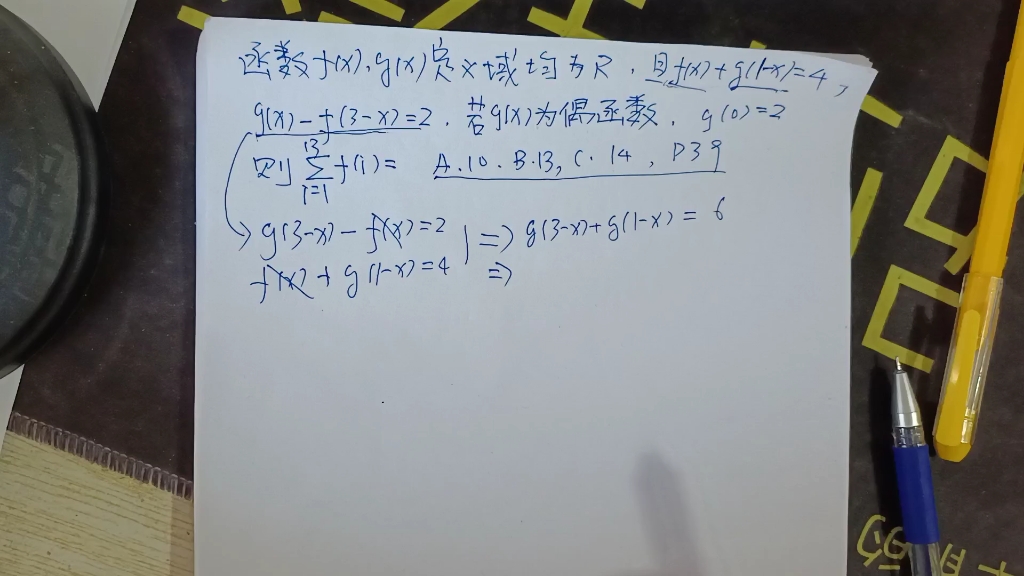 函数f(x),g(x)定义域均为R,且f(x)+g(1-x)=4,
g(x)-f(3-x)=2.若g(x)为偶函数,g(0)=2
则∑_{i=1}^{13}f(i)= A.10.B.13,C.14,D39
g(3-x)-f(x)=2 |=>g(3-x)+g(1-x)=6
f(x)+g(1-x)=4 =>